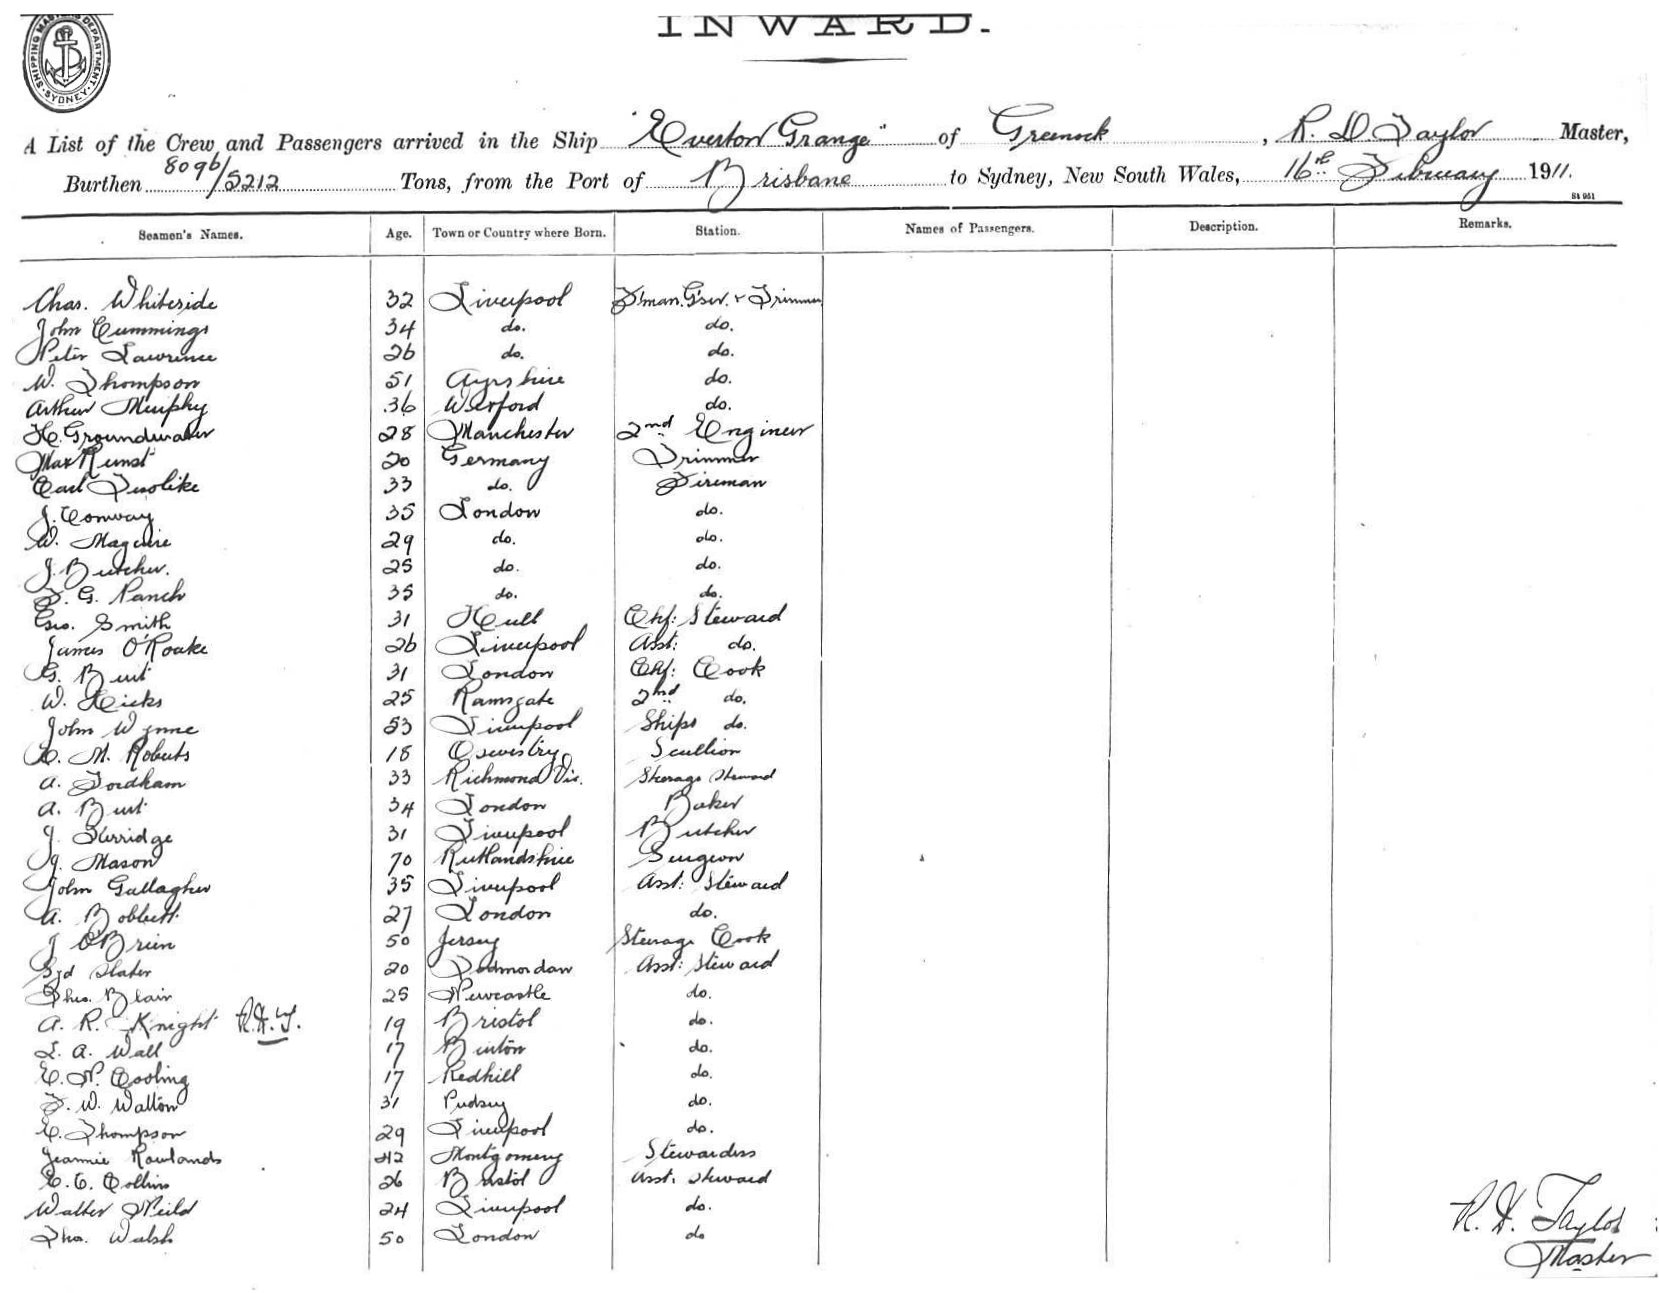 SHIPPING MASTERS DEPARTMENT. SYDNEY.
INWARD.
A List of the Crew and Passengers arrived in the Ship "Everton Grange" of Greenock, R. D. Taylor Master,
Burthen 8096/5212 Tons, from the Port of Brisbane to Sydney, New South Wales, 16th February 1911.
Seamen's Names. Age. Town or Country where Born. Station. Names of Passengers. Description. Remarks.
Chas. Whiteside 32 Liverpool F'man. G'ser. & Trimmer
John Cummings 34 do. do.
Peter Lawrence 26 do. do.
W. Thompson 51 Ayrshire do.
Arthur Murphy 36 Wexford do.
H. Groundwater 28 Manchester 2nd Engineer
Max 20 Germany Trimmer
Carl 33 do. Fireman
J. Conway 35 London do.
W. Maguire 29 do. do.
J. Butcher. 25 do. do.
F. G. Ranch 35 do. do.
Geo. Smith 31 Hull Chf: Steward
James O'Roake 26 Liverpool Asst: do.
G. Burt 31 London Chf: Cook
W. Hicks 25 Ramsgate 2nd do.
John Wynne 53 Liverpool Ships do.
M. Roberts 18 Oswestry Scullion
A. Fordham 33 Richmond Vic. Steerage Steward
A. Burt 34 London Baker
J. Kerridge 31 Liverpool Butcher
J. Mason 70 Rutlandshire Surgeon
John Gallagher 35 Liverpool Asst: Steward
A. Bobbett 27 London do.
J O'Brien 50 Jersey Steerage Cook
Syd Slater 20 Todmordan Asst: Steward
Thos. Blair 25 Newcastle do.
A. R. Knight R.H.T. 19 Bristol do.
L. A. Wall 17 do.
E. N. Cooling 17 Redhill do.
F. W. Walton 31 Pudsey do.
E. Thompson 29 Liverpool do.
Jeannie Rowlands 42 Montgomery Stewardess
E. C. Collins 26 Bristol Asst. Steward
Walter Neild 24 Liverpool do.
Thos. Walsh 50 London do
R. H. Taylor
Master